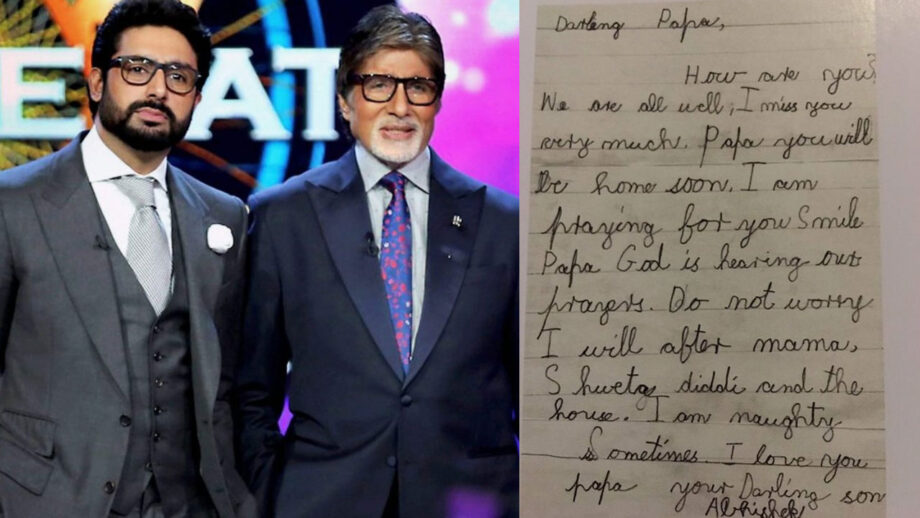 EAT
Darling Papa,
How are you?
We are all well, I miss you
very much. Papa you will
be home soon. I am
praying for you Smile
Papa God is hearing our
prayers. Do not worry
I will after mama,
Shweta diddi and the
house. I am naughty
Sometimes. I love you
papa your Darling son
Abhishek